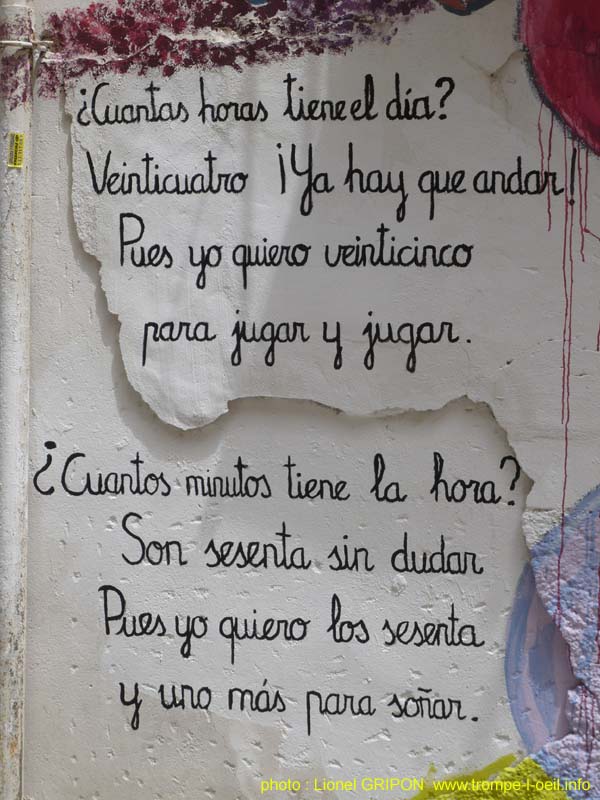 ¿Cuantas horas tiene el día?
Veinticuatro ¡Ya hay que andar!
Pues yo quiero veinticinco
para jugar y jugar.
¿Cuantos minutos tiene la hora?
Son sesenta sin dudar
Pues yo quiero los sesenta
y uno más para soñar.
photo : Lionel GRIPON www.trompe-l-oeil.info